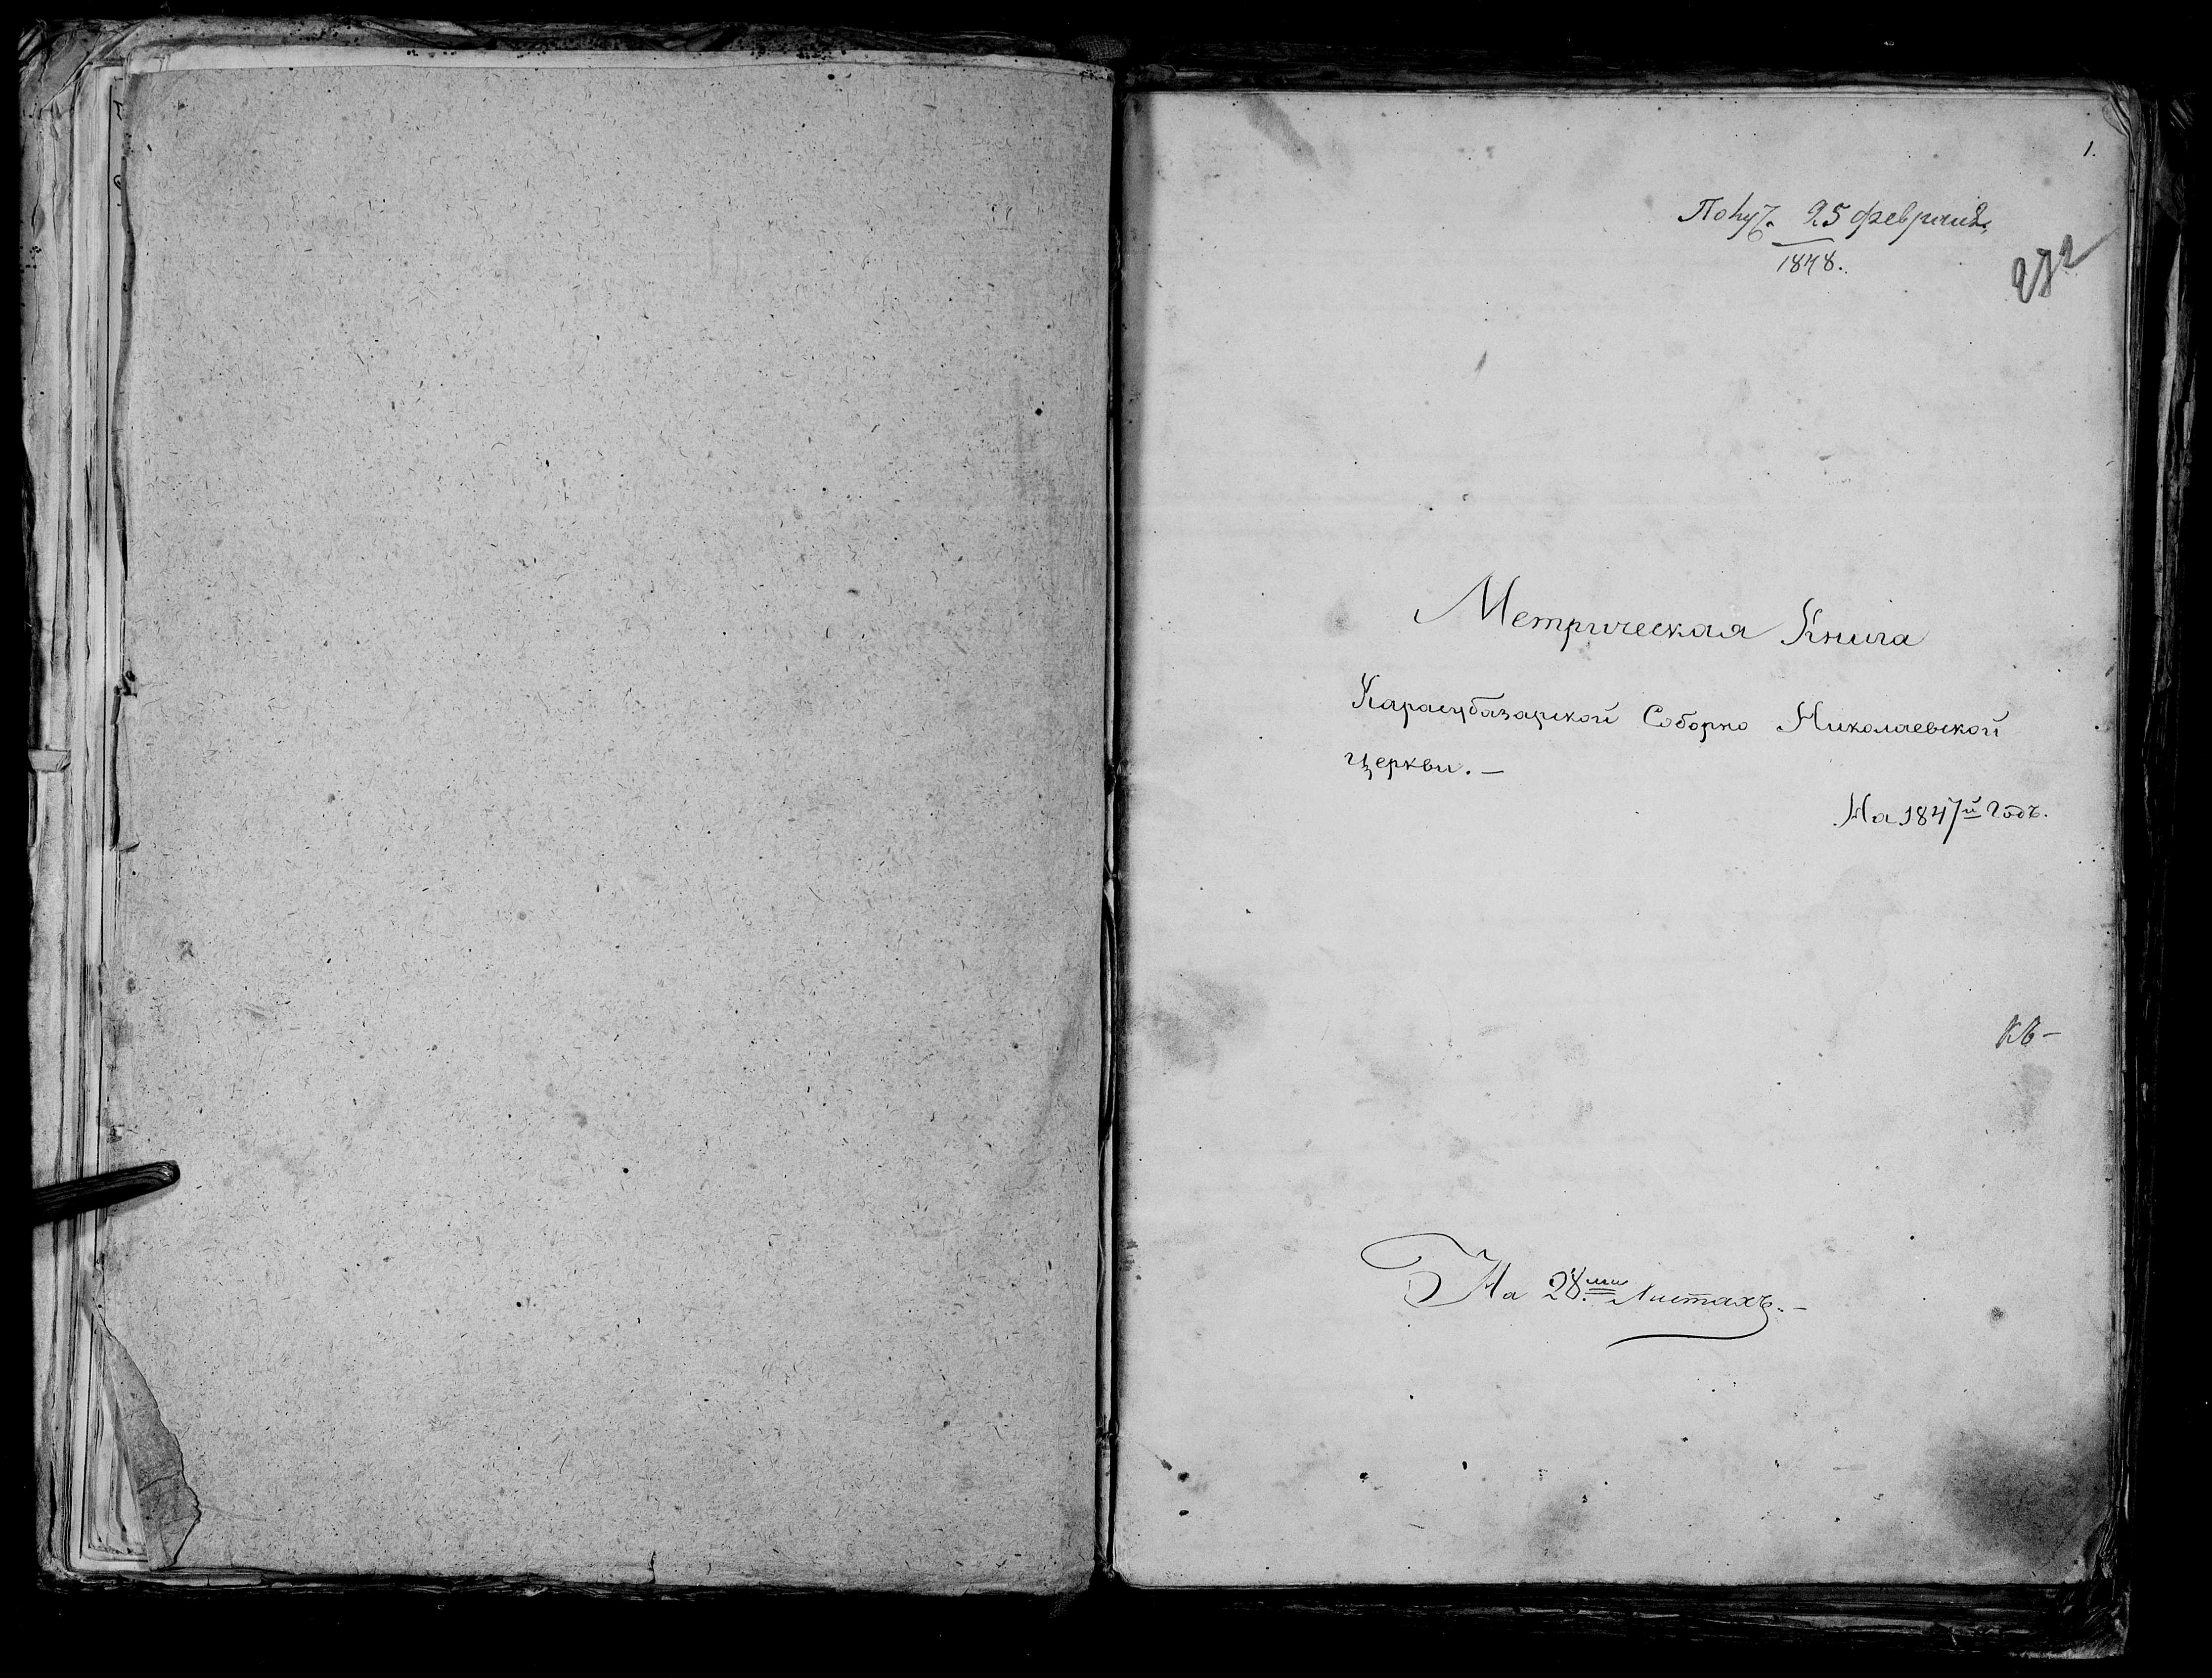 1.
Получ. 25 февраля
1848.
Метрическая Книга
Карасубазарской Соборно Николаевской
церкви. —
На 1847й годъ.
На 28ми Листахъ. —